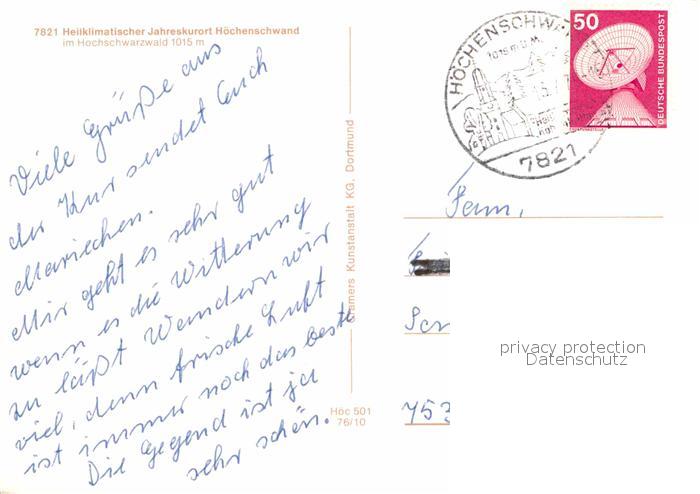 7821 Heilklimatischer Jahreskurort Höchenschwand
im Hochschwarzwald 1015 m
Viele Grüße aus
der Kur sendet Euch
Mariechen.
Mir geht es sehr gut
wenn es die Witterung
zu läßt Wandern wir
viel, denn frische Luft
ist immer noch das beste
Die Gegend ist ja
sehr schön.
Cramers Kunstanstalt KG, Dortmund
Höc 501
76/10
HÖCHENSCHWAND
1015 m ü. M.
7821
50
DEUTSCHE BUNDESPOST
Fam.
753
privacy protection
Datenschutz